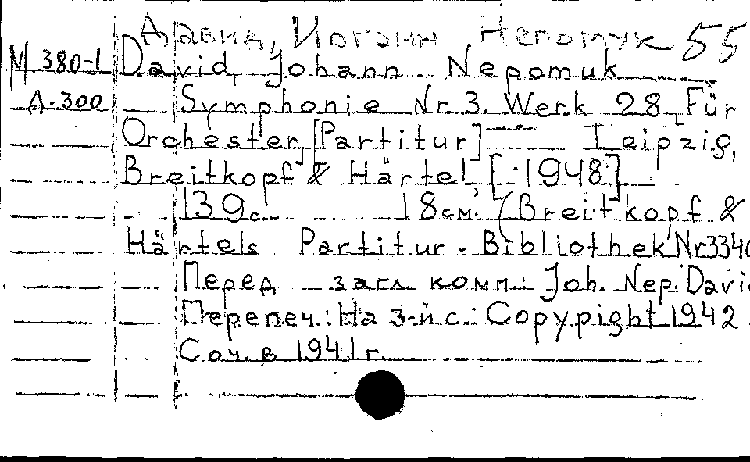 Давид, Иоганн Непомук 55
М 380-1 David, Johann Nepomuk
А-300 Symphonie Nr. 3. Werk 28. Für
Orchester. [Partitur] Leipzig,
Breitkopf & Härtel, [1948]
139 с. 18 см. (Breitkopf &
Härtels Partitur-Bibliothek Nr 3340
Перед загл. комп.: Joh. Nep. Davi
Перепеч.: На 3-й с.: Copyright 1942
Соч. в 1941 г.